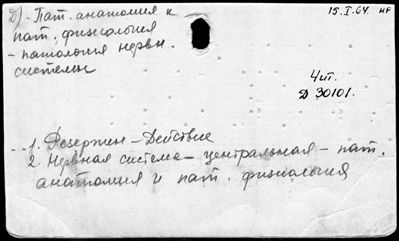 Д). Пат. анатомия и
пат. физиология
- патология нервн.
системы
15.I.64. нр
Чит.
Д 30101.
1. Резерпин - Действие
2. Нервная система - центральная - пат.
анатомия и пат. физиология